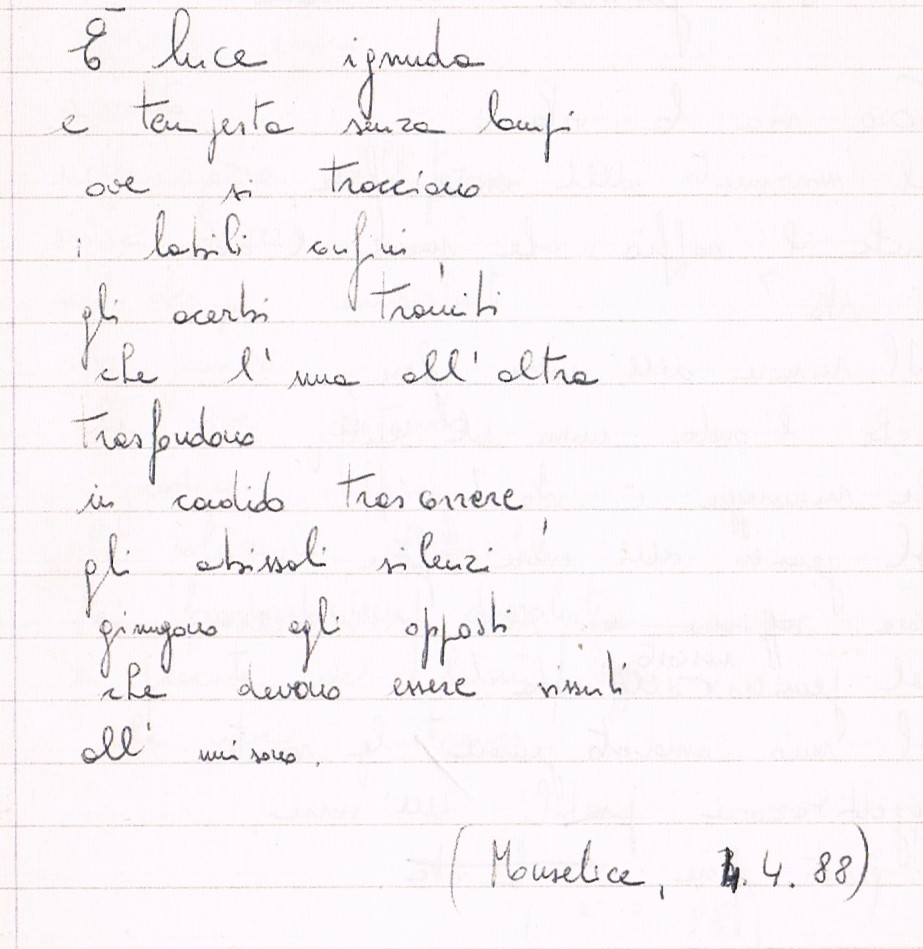 È luce ignuda
e tempesta senza lampi
ove si tracciano
i labili confini
gli acerbi tramiti
che l'una all'altra
trasfondono
in candido trascorrere
gli abissali silenzi
giungono agli opposti
che devono essere vissuti
all'unisono.
(Monselice, 4.88)